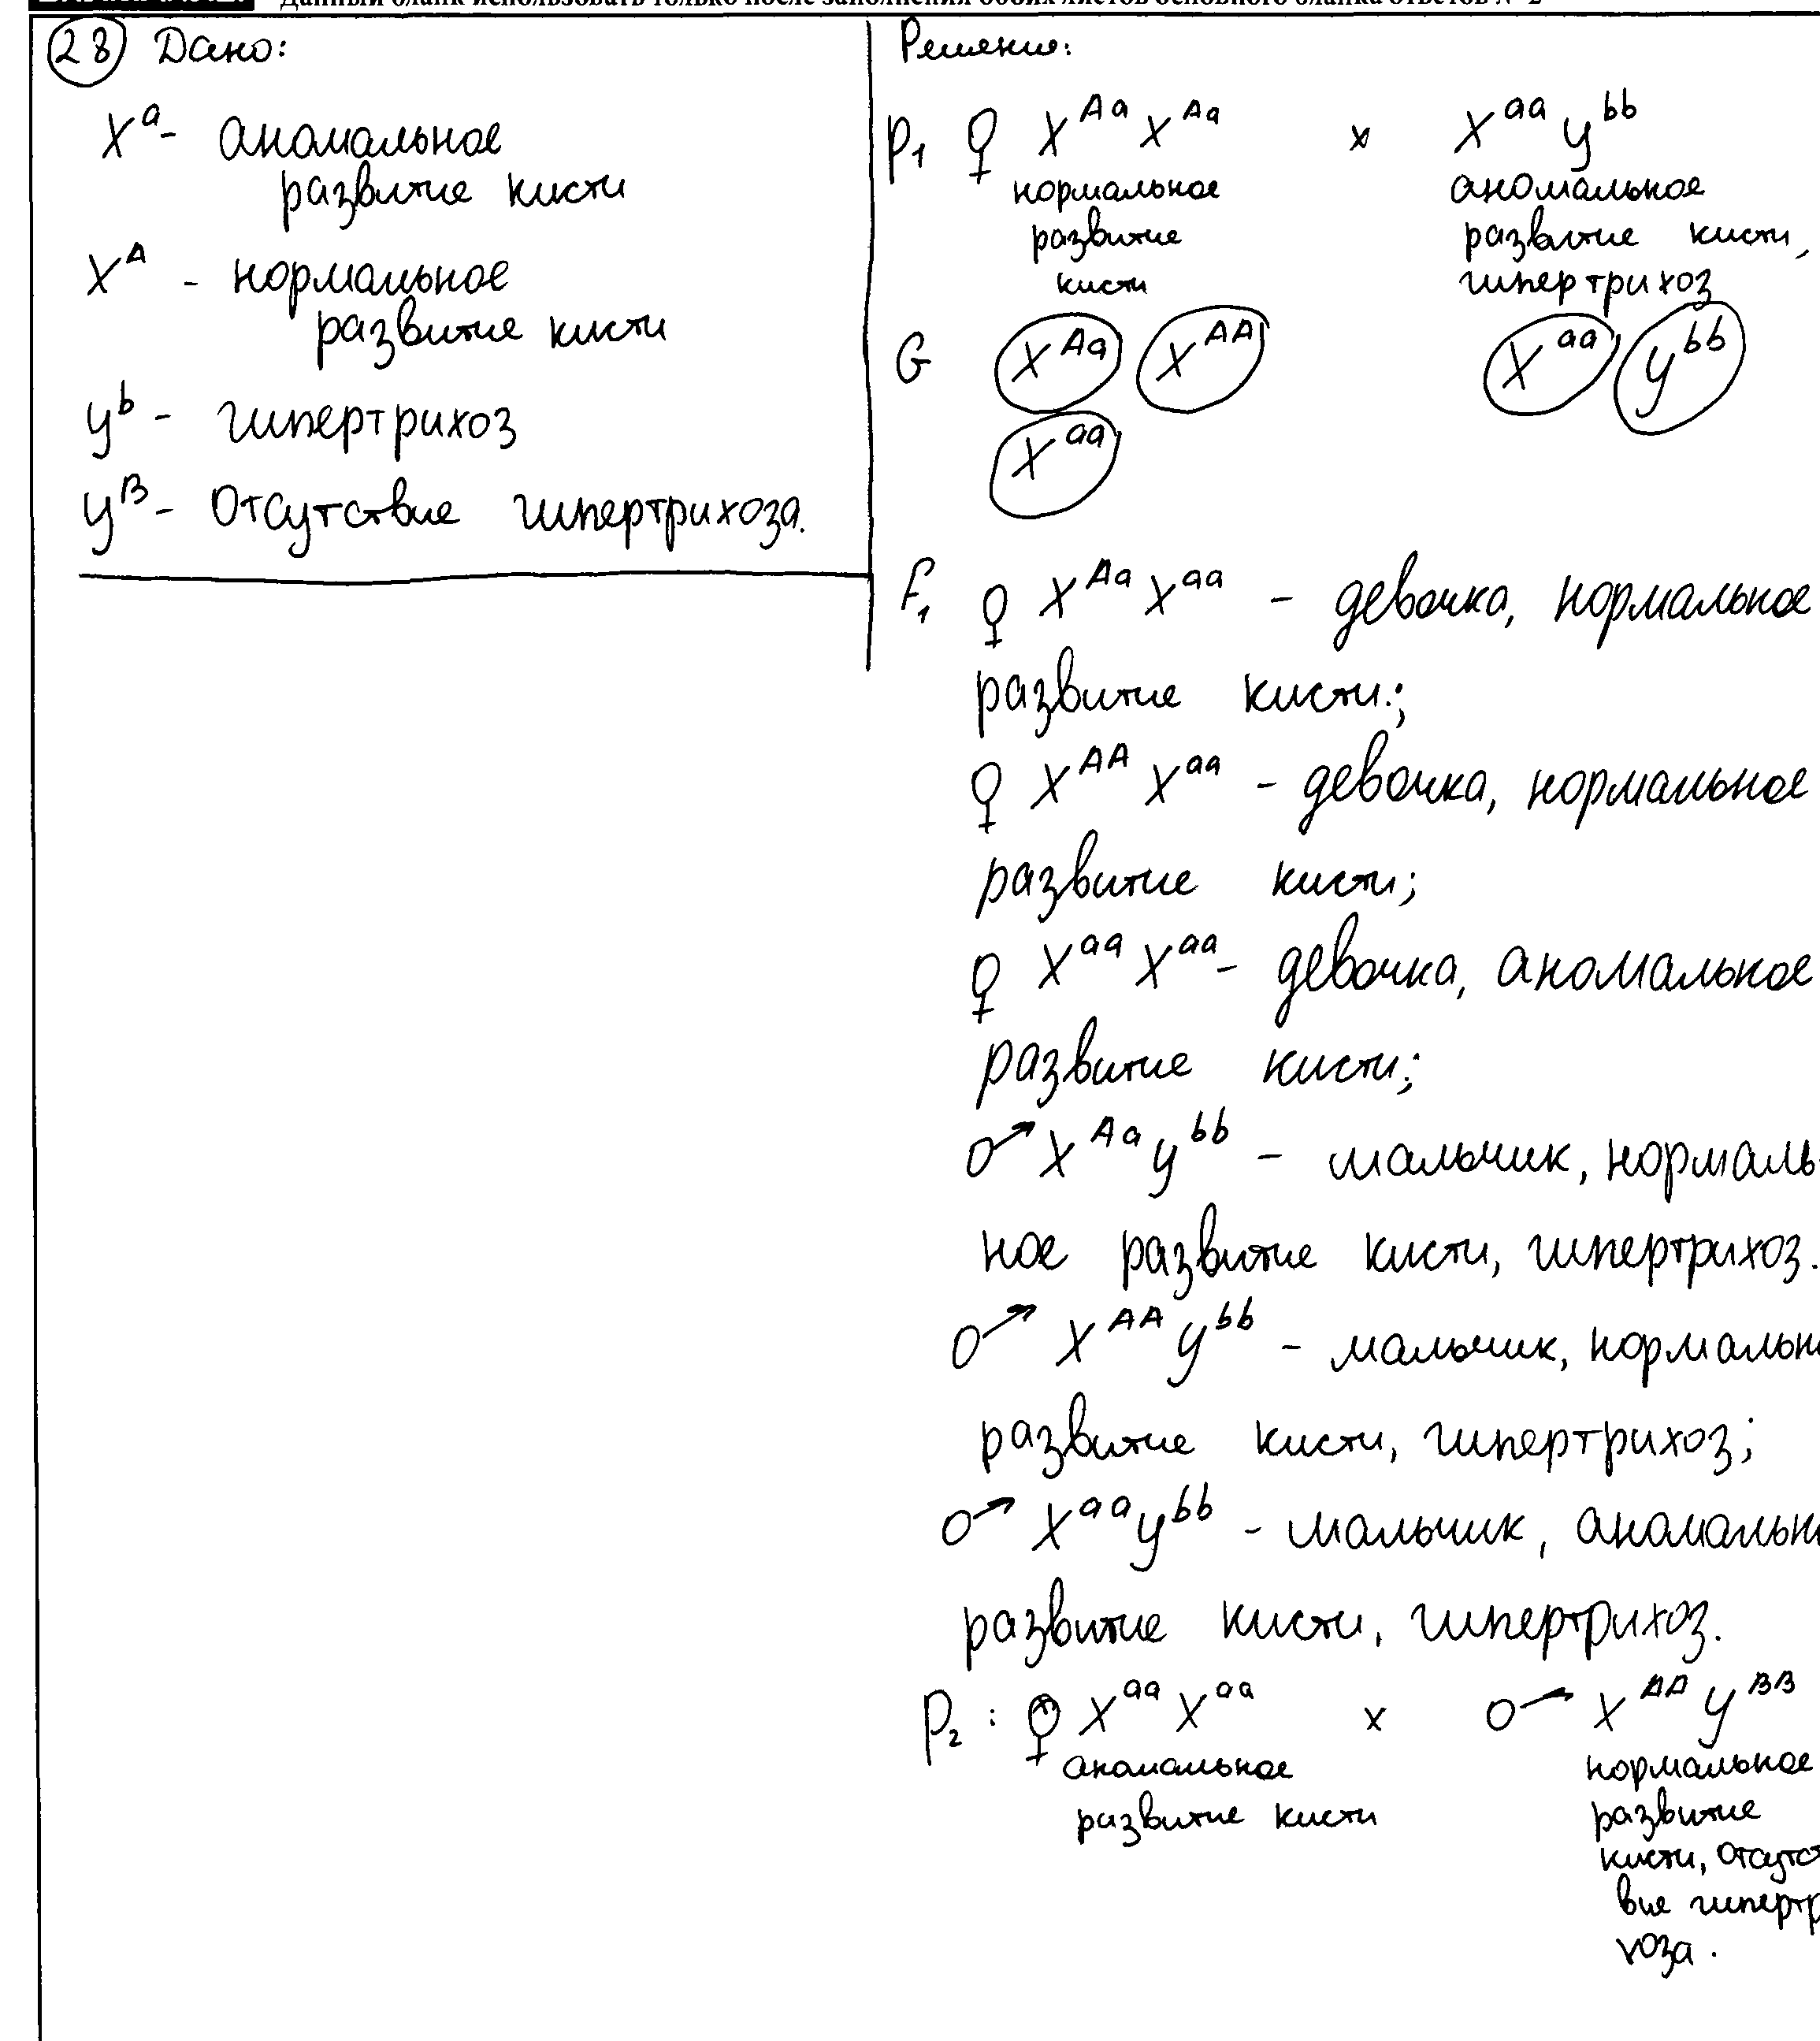 Данный бланк использовать только после заполнения обоих листов основного бланка ответов № 2
28 Дано:
X^a - аномальное
развитие кисти
X^A - нормальное
развитие кисти
y^b - гипертрихоз
y^B - Отсутствие гипертрихоза.
Решение:
P₁ ♀ X^Aa X^Aa × X^aa y^bb
нормальное аномальное
развитие развитие кисти,
кисти гипертрихоз
G X^Aa X^AA X^aa y^bb
X^aa
F₁ ♀ X^Aa X^aa - девочка, нормальное
развитие кисти.;
♀ X^AA X^aa - девочка, нормальное
развитие кисти;
♀ X^aa X^aa - девочка, аномальное
развитие кисти;
♂ X^Aa y^bb - мальчик, нормаль-
ное развитие кисти, гипертрихоз.
♂ X^AA y^bb - мальчик, нормальн
развитие кисти, гипертрихоз;
♂ X^aa y^bb - мальчик, аномальн
развитие кисти, гипертрихоз.
P₂ : ♀ X^aa X^aa x ♂ X^AA y^BB
аномальное нормальное
развитие кисти развитие
кисти, отсутст
вие гипертр
хоза.